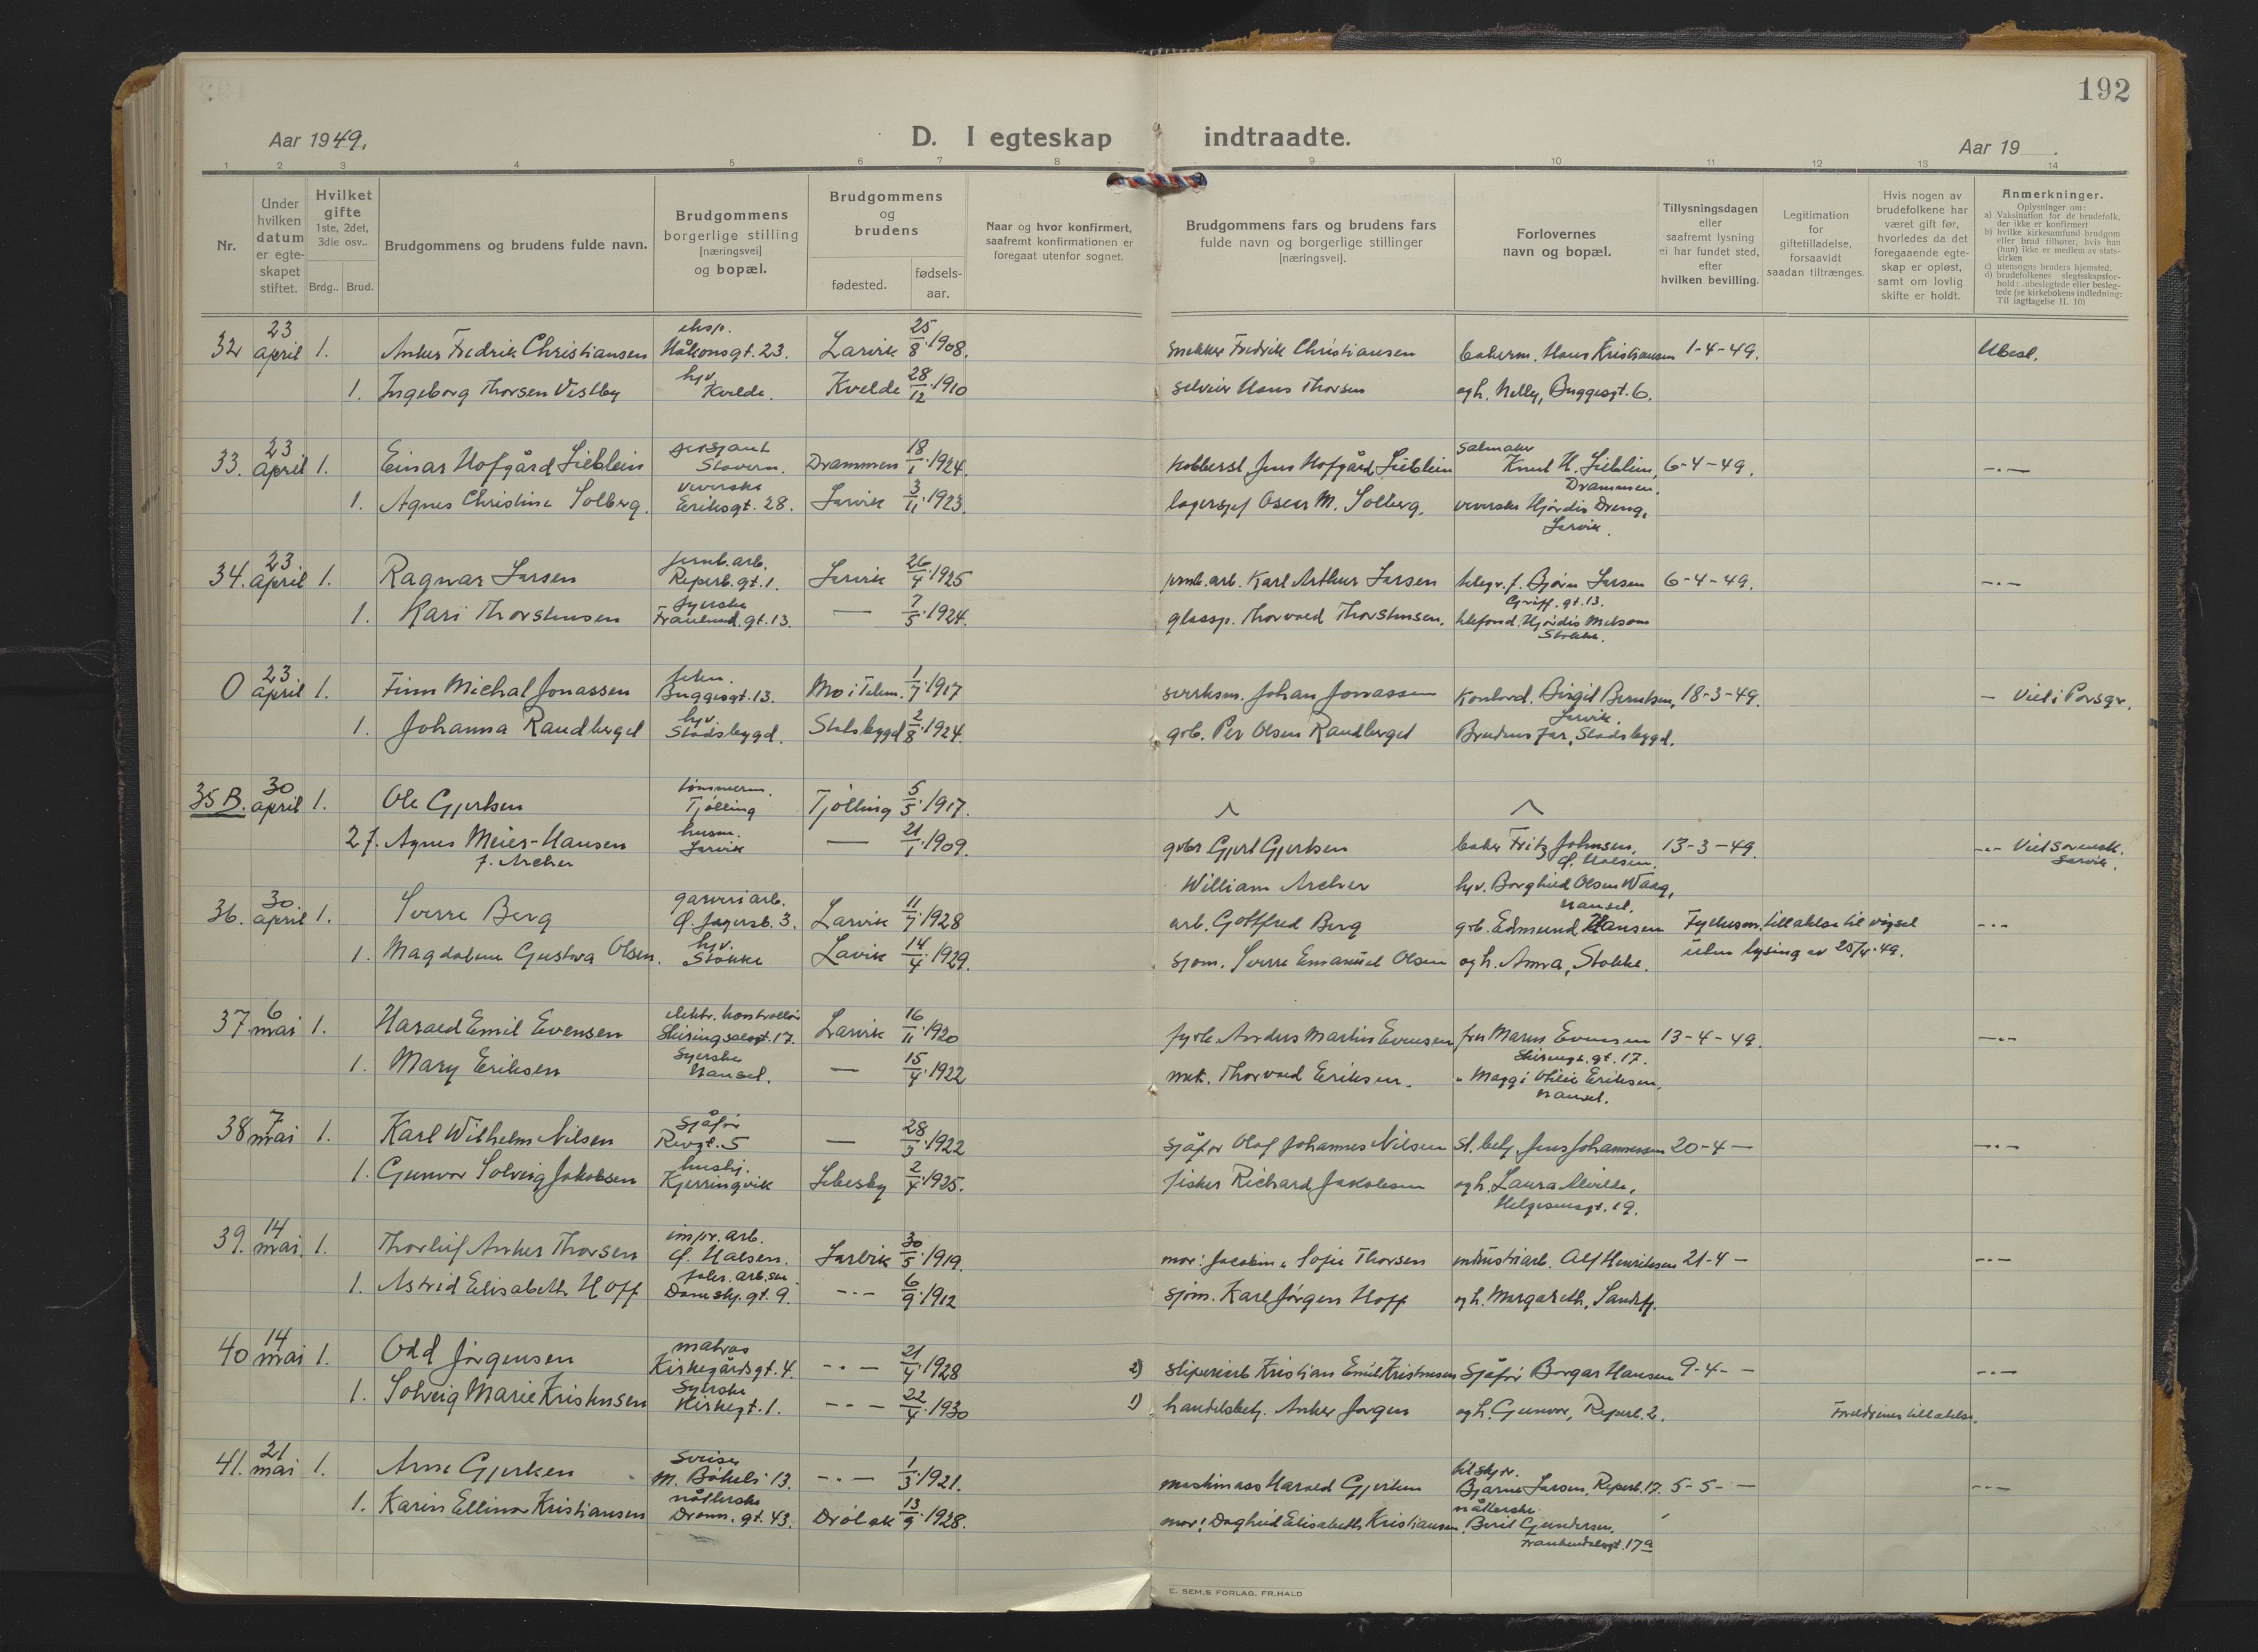 192
Aar 1949.
D. I egteskap indtraadte.
Aar 19 .
1 2 3 4 5 6 7 8 9 10 11 12 13 14
Nr.
Under hvilken datum er egte-skapet stiftet.
Hvilket gifte 1ste, 2det, 3die osv..
Brdg.. Brud.
Brudgommens og brudens fulde navn.
Brudgommens borgerlige stilling [næringsvei] og bopæl.
Brudgommens og brudens
fødested.
fødsels-aar.
Naar og hvor konfirmert, saafremt konfirmationen er foregaat utenfor sognet.
Brudgommens fars og brudens fars fulde navn og borgerlige stillinger [næringsvei].
Forlovernes navn og bopæl.
Tillysningsdagen eller saafremt lysning ei har fundet sted, efter hvilken bevilling.
Legitimation for giftetilladelse, forsaavidt saadan tiltrænges.
Hvis nogen av brudefolkene har været gift før, hvorledes da det foregaaende egte-skap er opløst, samt om lovlig skifte er holdt.
Anmerkninger.
Oplysninger om:
a) Vaksination for de brudefolk, der ikke er konfirmert
b) hvilke kirkesamfund brudgom eller brud tilhører, hvis han (hun) ikke er medlem av stats-kirken
c) utensogns bruders hjemsted.
d) brudefolkenes slegtsskapsfor-hold: ubeslegtede eller besleg-tede (se kirkebokens indledning: Til iagttagelse II. 10)
23 eksp. 25
32 april 1. Anker Fredrik Christiansen Håkonsgt. 23. Larvik 8 1908. snekker Fredrik Christiansen bakerm. Hans Kristiansen 1-4-49. Ubesl.
hjv. 28
1. Ingeborg Thorsen Vestby Kvelde. Kvelde 12 1910 selveier Hans Thorsen og h. Nelly, Buggesgt. 6.
23 sersjant 18 Salmaker
33. april 1. Einar Hofgård Lieblein Stavern. Drammen 1 1924. Jens Hofgård Lieblein Knut H. Lieblein, 6-4-49. -.-
veverske 3 Drammen.
1. Agnes Christine Solberg. Eriksgt. 28. Larvik 11 1923. lagersjef Oscar M. Solberg. veverske Hjørdis Dreng,
Larvik.
23 jernb.arb. 26
34. april 1. Ragnar Larsen Reperb.gt. 1. Larvik 4 1925 jernb.arb. Karl Arthur Larsen telegr.f. Bjørn Larsen 6-4-49. -.-
syerske 7 Griff. gt. 13.
1. Kari Thorstensen gt. 13. — 5 1924. glassp. Thorvald Thorstensen. telefond. Hjørdis Melsom
Stokke.
23 1
0 april 1. Finn Michal Jonassen Buggesgt. 13. Mo i Telem. 7 1917 Johan Jonassen Kontord. Birgit Berntsen, 18-3-49. — Viet i Porsgr.
hjv. 2 Larvik.
1. Johanna Randberget Stadsbygd. Stadsbygd 8 1924. grb. Per Olsen Randberget Brudens far, Stadsbygd.
30 tømmerm. 5
35 B. april 1. Ole Gjertsen Tjølling Tjølling 5 1917.
husm. 21
2 f. Agnes Meier-Hansen Larvik — 1 1909. grbr Gjert Gjertsen baker Fritz Johnsen, 13-3-49. -.- Viet
f. Archer Ø. Halsen. Larvik.
William Archer hjv. Borghild Olsen Waag,
30. garveriarb. 11 Nanset.
36. april 1. Sverre Berg Ø. Jegersb. 3. Larvik 7 1928 arb. Gottfred Berg grb. Edmund Hansen Fylkesm. tillatelse til vigsel -.-
hjv. 14
1. Magdalene Gustava Olsen. Stokke Lavik 4 1929. sjøm. Sverre Emanuel Olsen og h. Anna, Stokke. uten lysing av 25/4-49.
6 elektr. kontrollør 16
37. mai 1. Harald Emil Evensen Skiringssalsgt. 17. Larvik 11 1920 fyrb. Anders Martin Evensen fru Maren Evensen 13-4-49. -.-
Syerske 15 gt. 17.
1. Mary Eriksen Nanset. — 4 1922 mek. Thorvald Eriksen. " Maggi Otilie Eriksen,
Nanset.
7 sjåfør 28
38 mai 1. Karl Wilhelm Nilsen Revgt. 5 — 3 1922 sjåfør Olaf Johannes Nilsen st.betj. Jens Johannessen 20-4 — -.-
hushj. 2
1. Gunvor Solveig Jakobsen Kjerringvik Lebesby 4 1925. fisker Richard Jakobsen og h. Laura Alvilde,
Helgesensgt. 19.
14 impr. arb. 30
39. mai. 1. Thorleif Anker Thorsen Ø. Halsen. Larvik 5 1919. mor: Jacobine Sofie Thorsen industriarb. Alf Henriksen 21-4 — -.-
fabr. arb.ske 6
1. Astrid Elisabeth Hoff Danskj. gt. 9. -.- 9 1912 sjøm. Karl Jørgen Hoff og h. Margareth, Sandefj.
14 matros 21
40 mai 1. Odd Jørgensen Kirkegårdsgt. 4. -.- 4 1928 2) sliperiarb Kristian Emil Kristensen Sjåfør Borgar Hansen 9-4- — -.-
Syerske 22
1. Solveig Marie Kristensen Kirkegt. 1. -.- 4 1930 1) handelsbetj. Anker Jørgen og h. Gunvor, Reperb. 2. Foreldrenes tillatelse.
21 Sveiser 1 bilskjør.
41. mai 1. Arne Gjerken M. Bøkeli 13. -.- 3 1921. maskinass Harald Gjerken Bjarne Larsen, Reperb. 17. 5-5- — -.-
nåtlerske 13 nåtlerske
1. Karin Ellinor Kristiansen Dronn. gt. 43. Drøbak 9 1928. mor: Daghild Elisabeth Kristiansen. Beril Gundersen,
17a
E. SEM.S FORLAG. FR.HALD